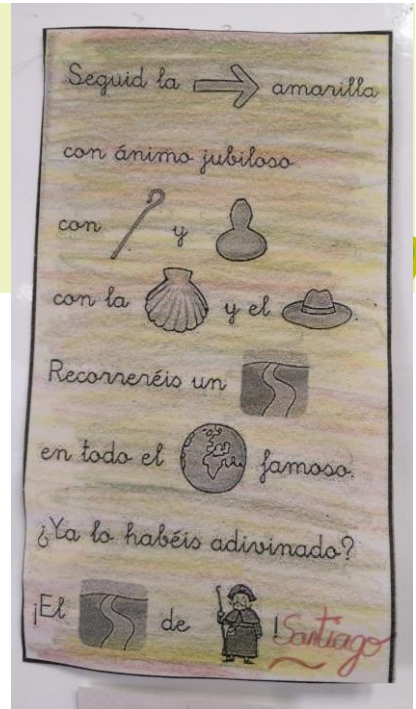 Seguid la amarilla
con ánimo jubiloso
con y
con la y el .
Recorreréis un
en todo el famoso.
¿Ya lo habéis adivinado?
¡El de ! Santiago